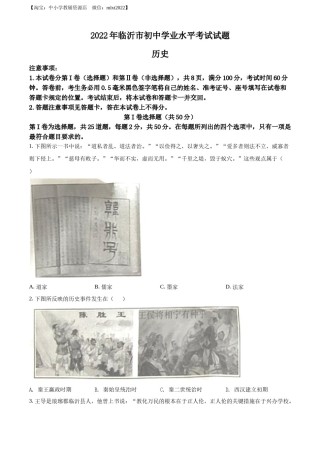 【淘宝：中小学教辅资源店 微信：mlxt2022】
2022年临沂市初中学业水平考试试题
历史
注意事项：
1.本试卷分第Ⅰ卷（选择题）和第Ⅱ卷（非选择题），共8页，满分100分，考试时间60分
钟。答卷前，考生务必用0.5毫米黑色签字笔将自己的姓名、准考证号、座号填写在试卷
和答题卡规定的位置。考试结束后，将本试卷和答题卡一并交回。
2.答题注意事项见答题卡，答在本试卷上不得分。
第Ⅰ卷选择题（共50分）
第Ⅰ卷为选择题，共25道题，每题2分，共50分。在每题所列出的四个选项中，只有一项是
最符合题目要求的。
1.下图所示一书中说：“道私者乱，道法者治。”“以伤得之，以著失之。”“奋多则亲法。”“千里之
堤，毁于蚁穴。”这些观点属于（
）
韩非子
A. 道家 B. 儒家 C. 墨家 D. 法家
2.下图所反映的历史事件发生在（ ）
陈胜王
王侯将相宁有种乎
A. 秦王嬴政时期 B. 秦始皇统治时 C. 秦二世统治时 D. 西汉建立初
3.王导是琅琊临沂县人，他曾上书说：“教化万民的根本在于正人伦，正人伦在于兴办学校。